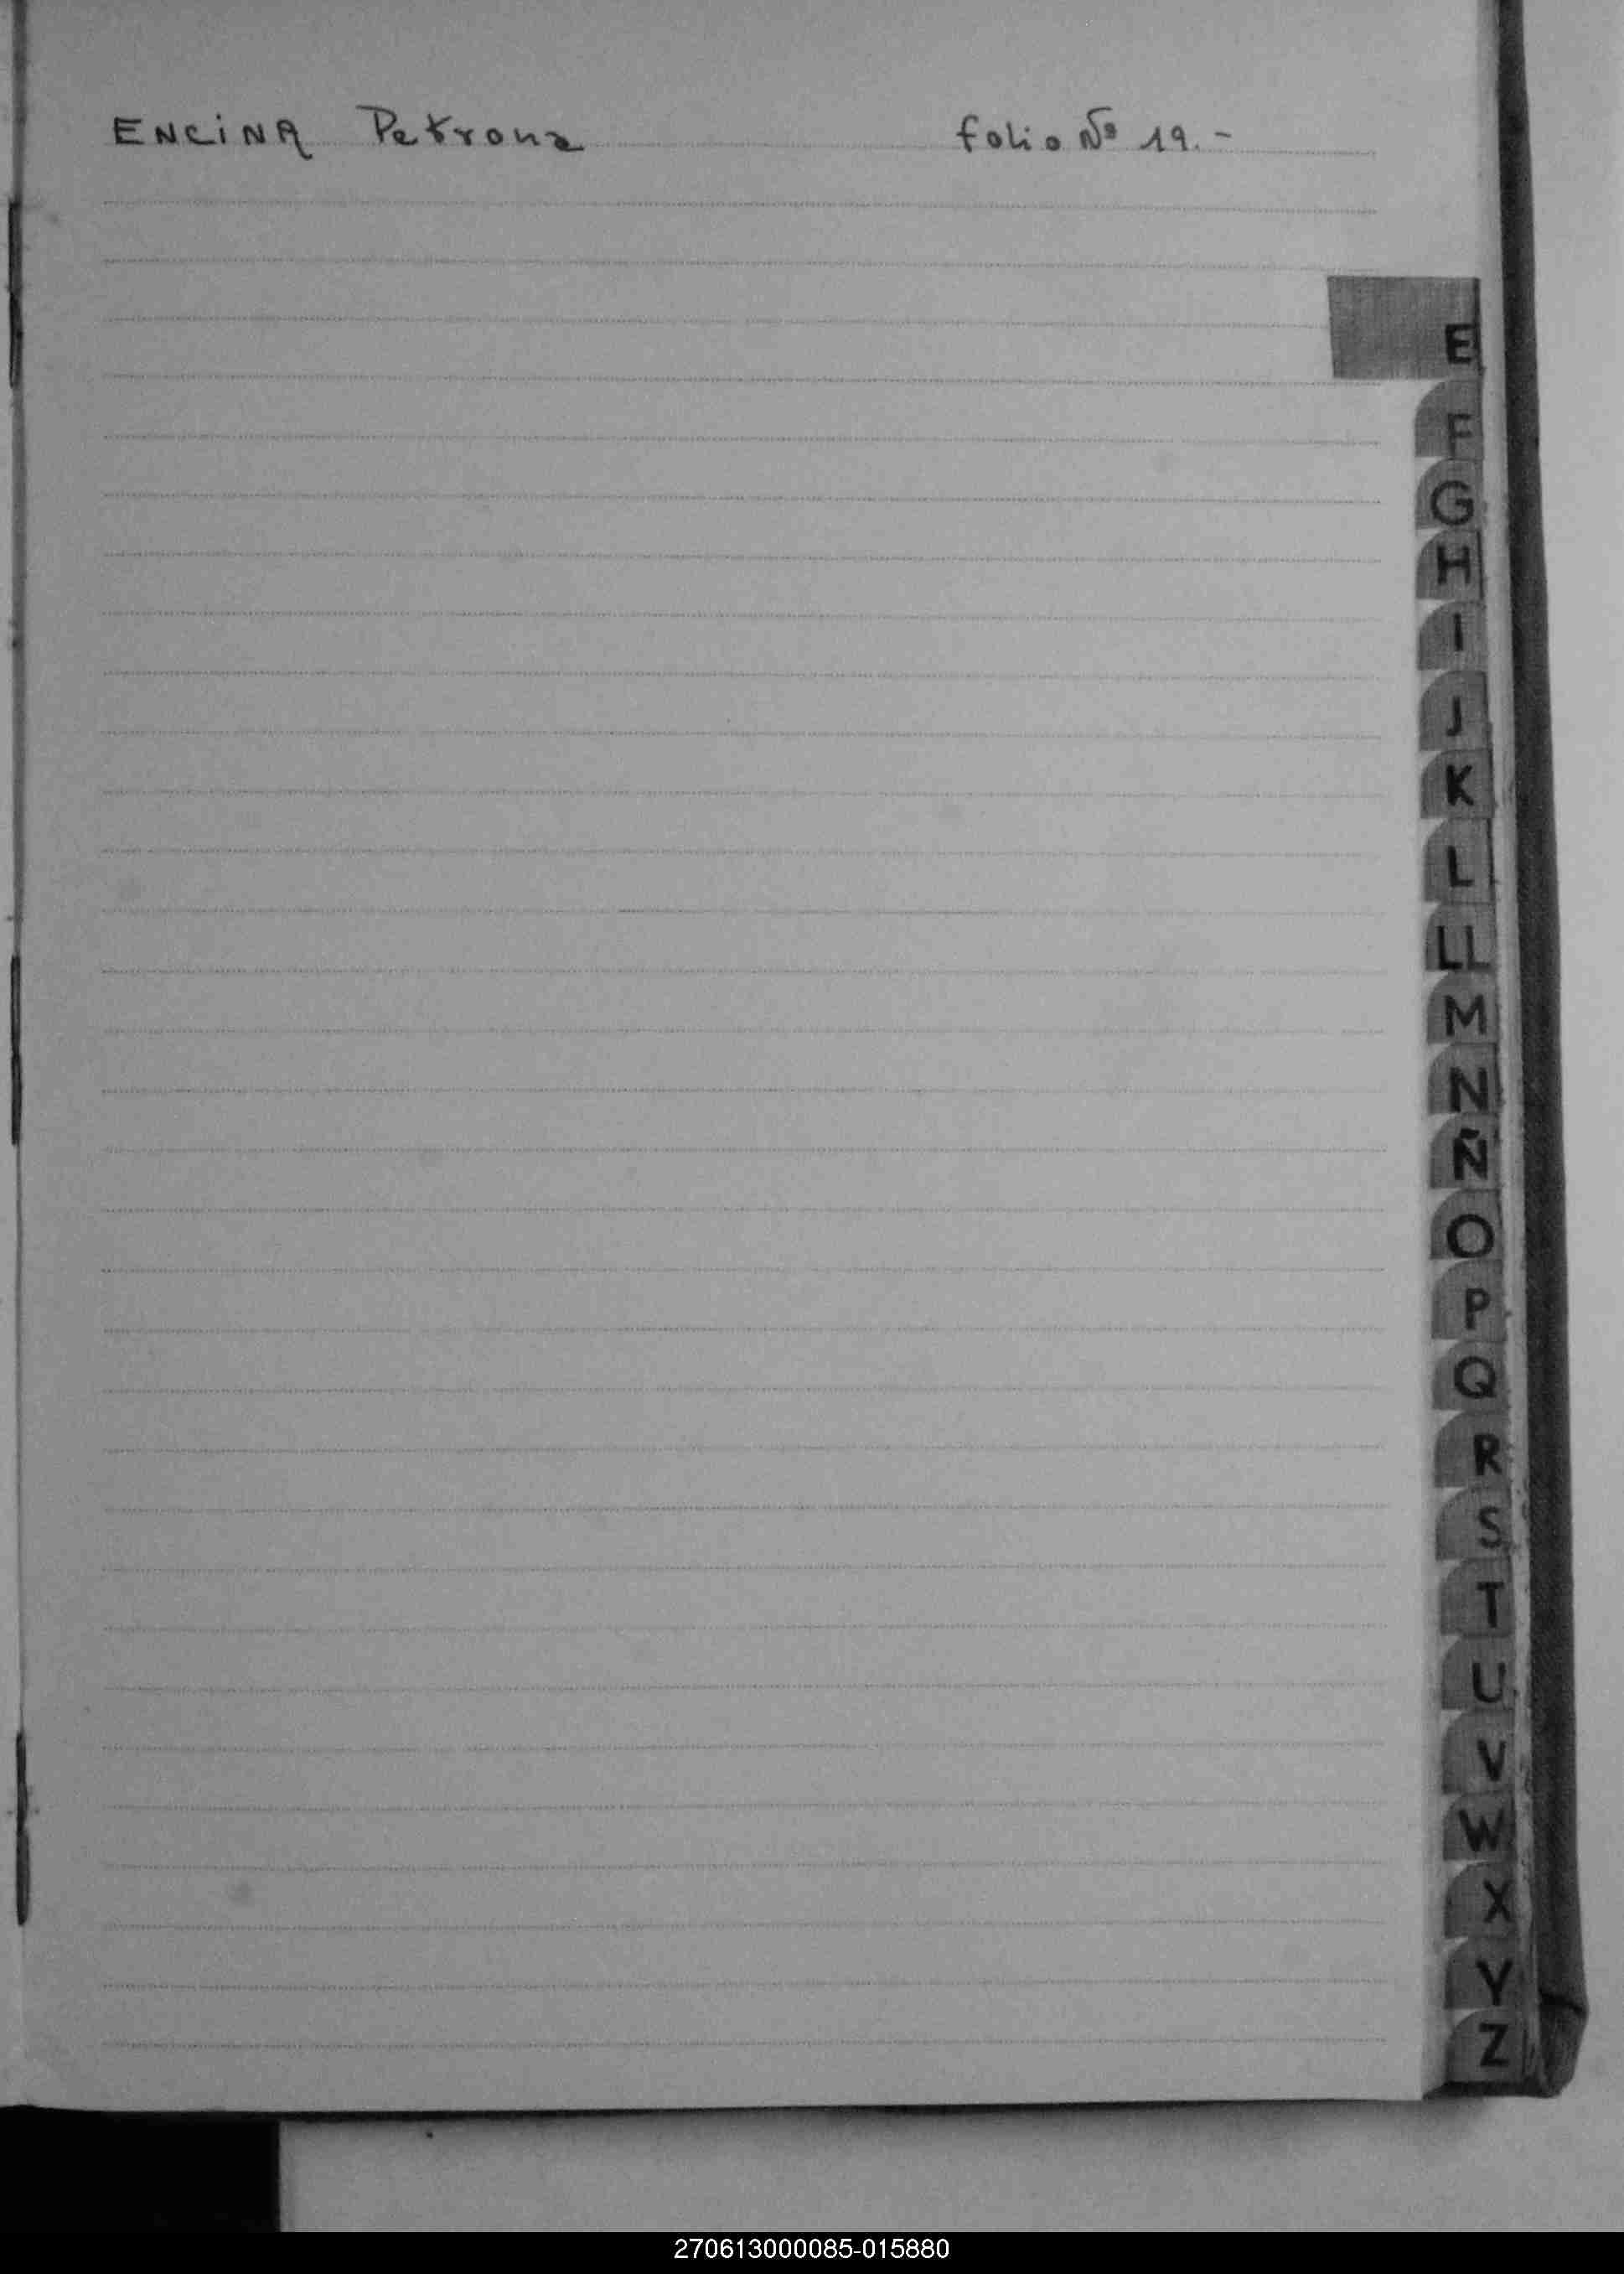 ENCINA Petrona folio Nº 19.-
E
F
G
H
I
J
K
L
LL
M
N
Ñ
O
P
Q
R
S
T
U
V
W
X
Y
Z
270613000085-015880